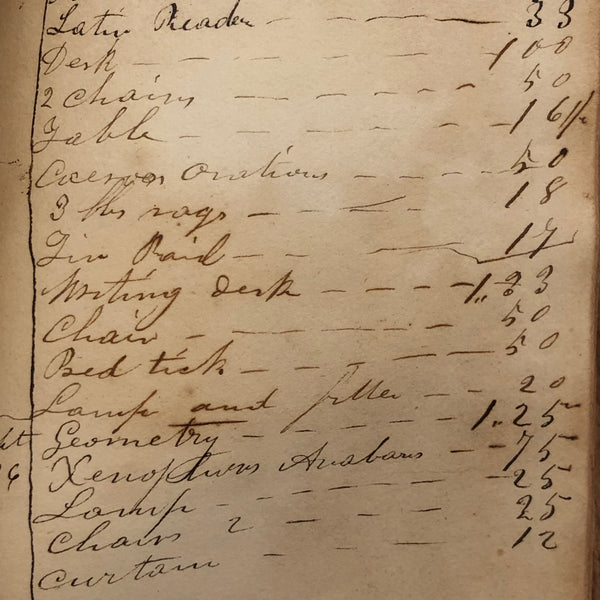 Latin Reader — — — — 33
Desk — — — — 1 00
2 chairs — — — — 50
Table — — — — 1 6
Ciceros Orations — — — 50
3 lbs rags — — — 18
Tin Pail — — — 17
Writing desk — — — 1.. 33
Chair — — — — 50
Bed tick — — — — 50
Lamp and filler — — 20
Geometry — — — — 1.. 25
Xenophons Anabasis — — 75
Lamp — — — — 25
Chairs 2 — — — 25
Curtain — — — 12